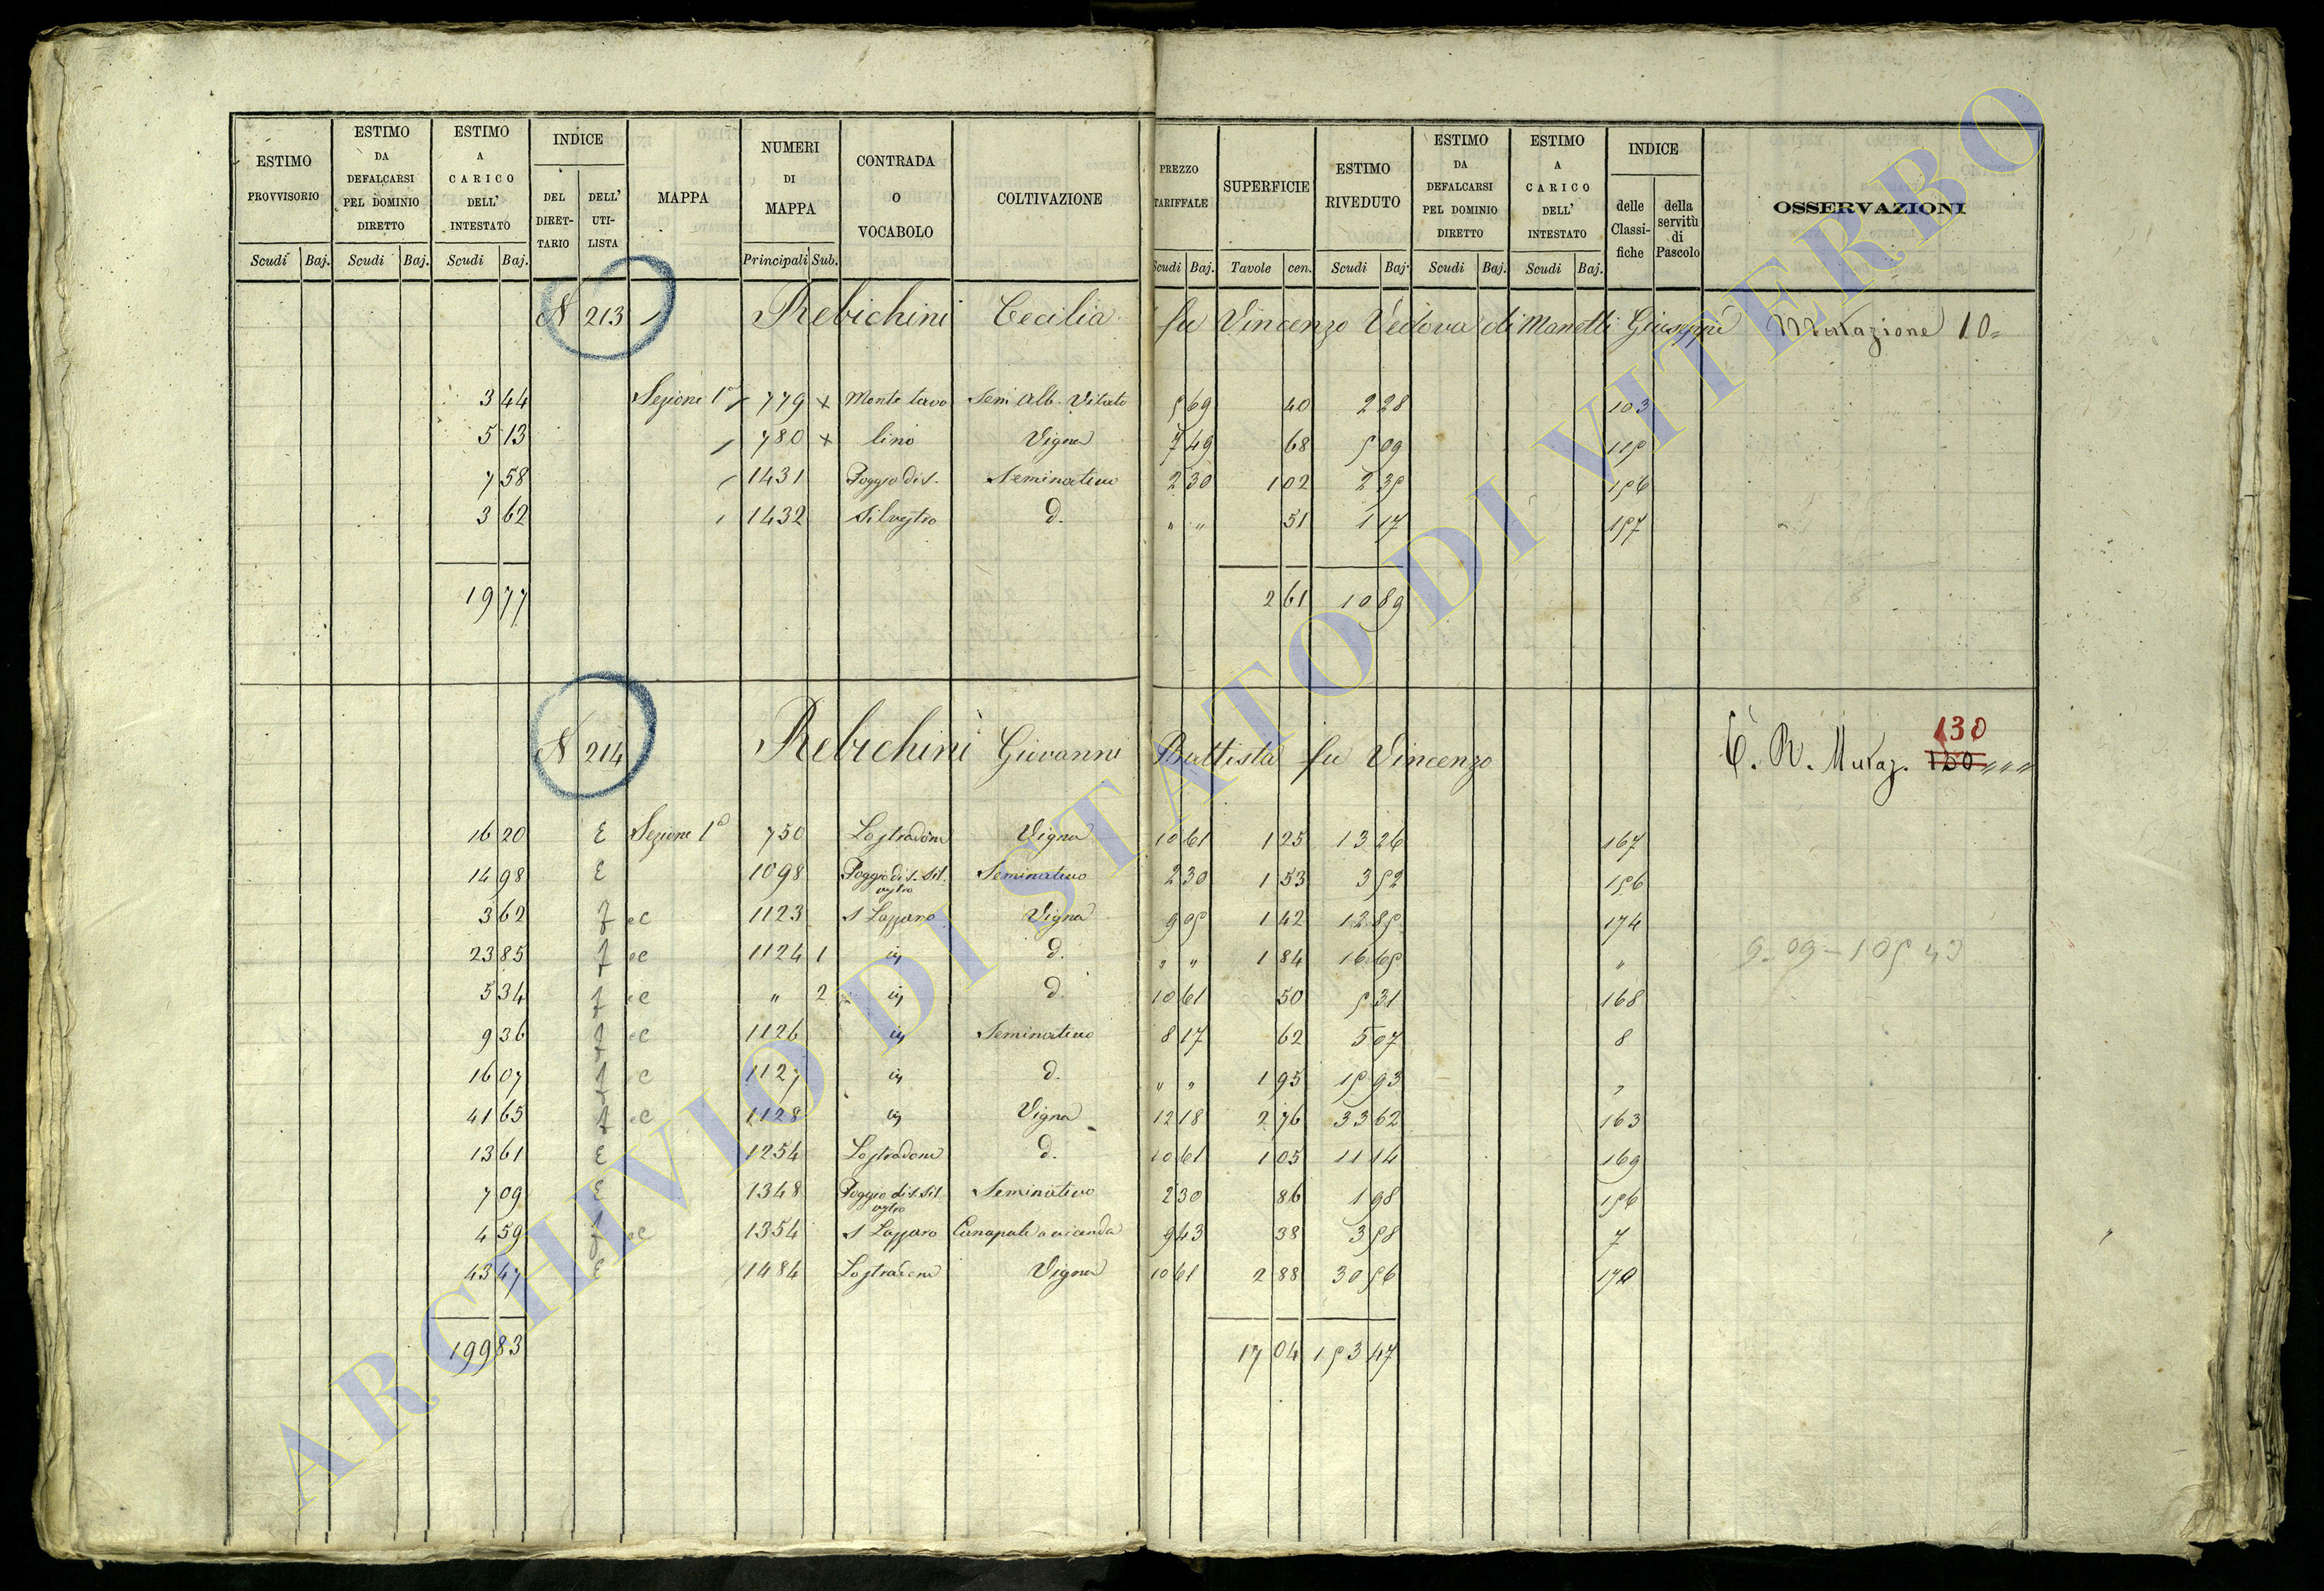 ESTIMO PROVVISORIO | ESTIMO DA DEFALCARSI PEL DOMINIO DIRETTO | ESTIMO A CARICO DELL' INTESTATO | INDICE DEL DIRETTARIO | DELL' UTILISTA | MAPPA | NUMERI DI MAPPA | CONTRADA O VOCABOLO | COLTIVAZIONE | PREZZO TARIFFALE | SUPERFICIE | ESTIMO RIVEDUTO | ESTIMO DA DEFALCARSI PEL DOMINIO DIRETTO | ESTIMO A CARICO DELL' INTESTATO | INDICE delle Classifiche | della servitù di Pascolo | OSSERVAZIONI
Scudi Baj. Scudi Baj. Scudi Baj. Principali Sub. Scudi Baj. Tavole cen. Scudi Baj. Scudi Baj. Scudi Baj.
N 213 Rebichini Cecilia fu Vincenzo Vedova di Manetti Giuseppe Mutazione 10
3 44 Sezione 1a 779 x Monte Sem. Alb. Vitato 5 69 40 2 28 103
5 13 780 x lino Vigna 7 49 68 5 09 115
7 58 1431 Poggio di S. Seminativo 2 30 1 02 2 35 156
3 62 1432 Silvestro d. " " 51 1 17 157
19 77 2 61 10 89
N 214 Rebichini Giovanni Battista fu Vincenzo 130
C. R. Mutaz. 120 " " "
16 20 E Sezione 1a 750 Lostradone Vigna 10 61 1 25 13 26 167
14 98 E 1098 Poggio di S. Silvestro Seminativo 2 30 1 53 3 52 156
3 62 f ec 1123 S Lazzaro Vigna 9 05 1 42 12 85 174
23 85 f ec 1124 1 in d. " " 1 84 16 65 "
5 34 f ec " 2 in d. 10 61 50 5 31 168
9 36 f ec 1126 in Seminativo 8 17 62 5 07 8
16 07 f ec 1127 in d. " " 1 95 15 93 "
41 65 f ec 1128 in Vigna 12 18 2 76 33 62 163
13 61 E 1254 Lostradone d. 10 61 1 05 11 14 169
7 09 E 1348 Poggio di S. Silvestro Seminativo 2 30 86 1 98 156
4 59 f ec 1354 S Lazzaro Canapule a vicenda 9 43 38 3 58 7
43 47 E 1484 Lostradone Vigna 10 61 2 88 30 56 170
199 83 17 04 153 47
ARCHIVIO DI STATO DI VITERBO